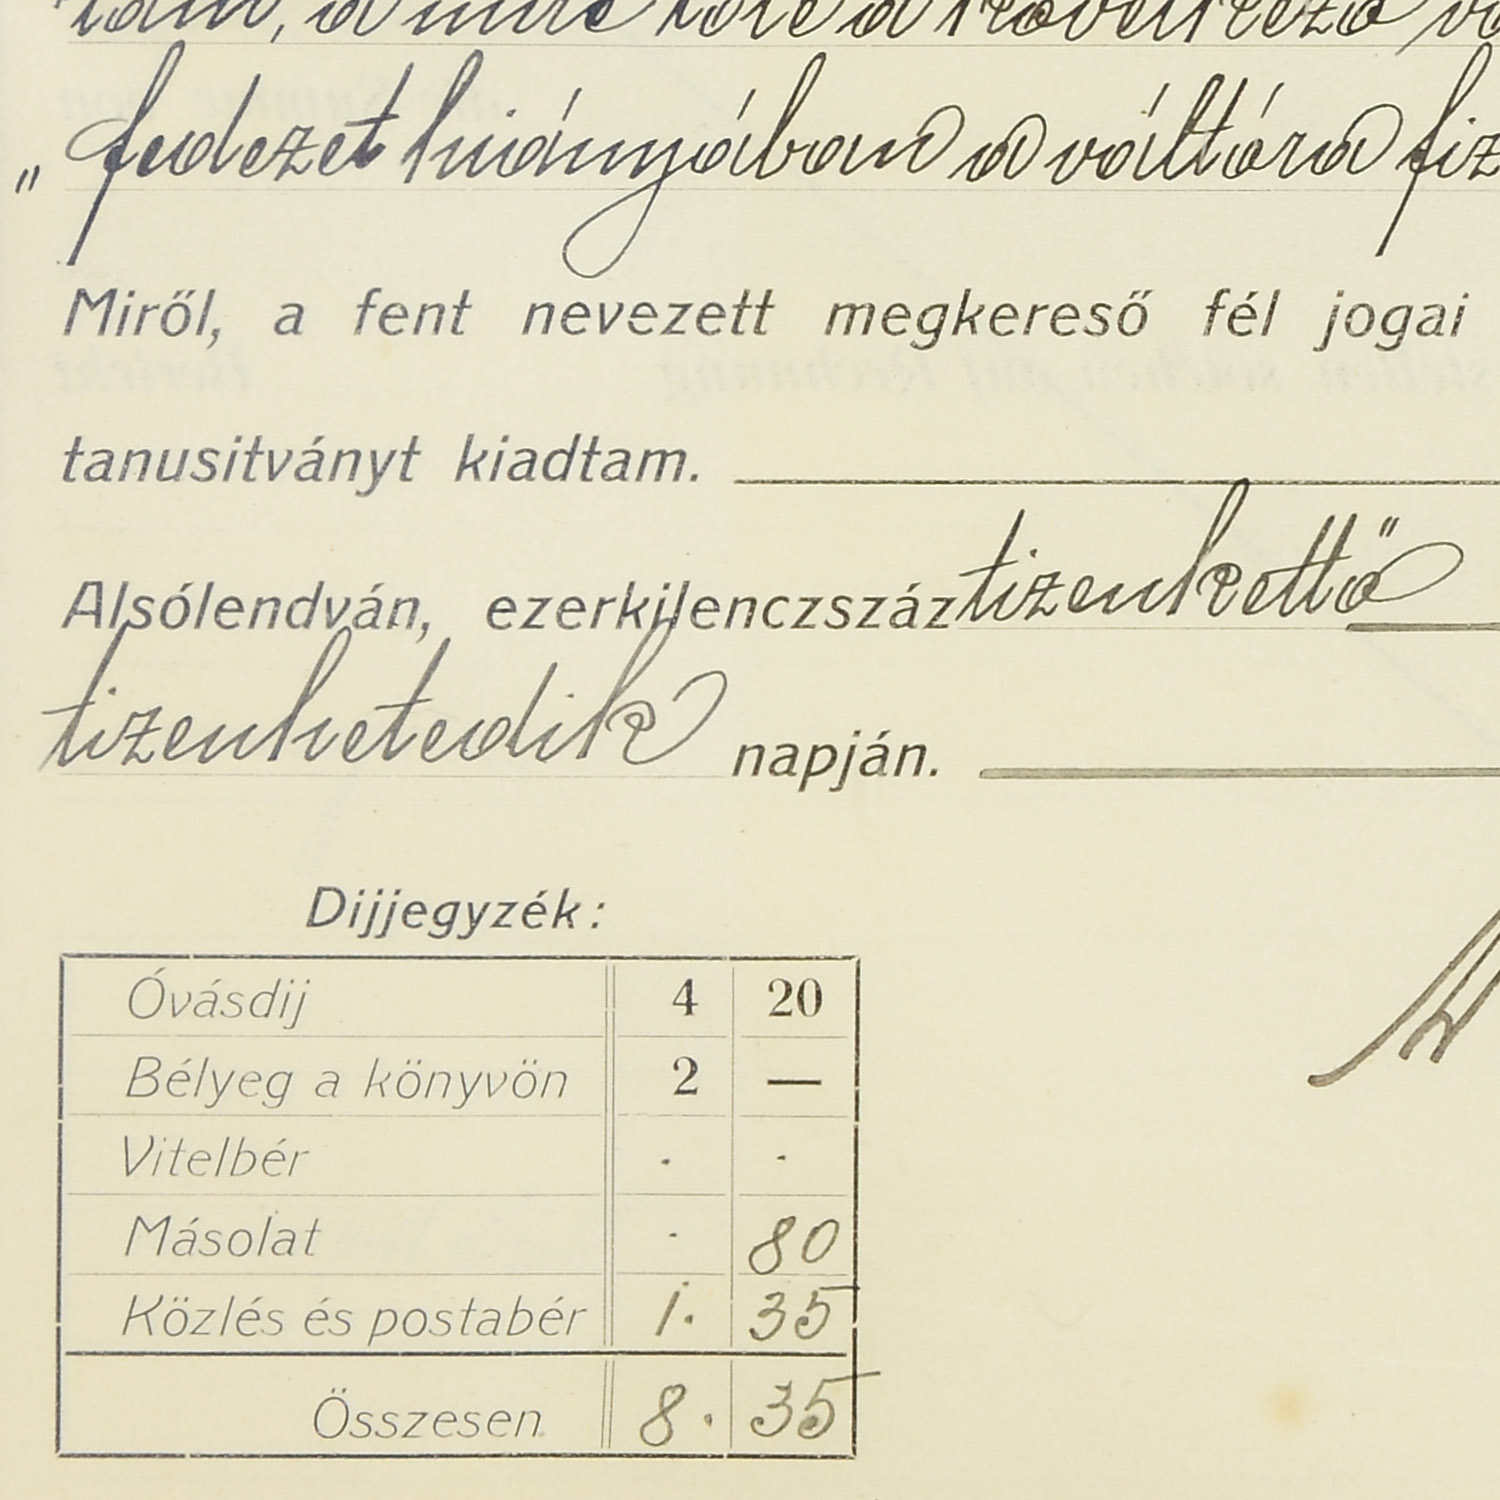 tam, a mire tőle a következő vá
„ fedezet hiányában a váltóra fiz
Miről, a fent nevezett megkereső fél jogai
tanusitványt kiadtam.
Alsólendván, ezerkilenczszáz tizenkettő
tizenhetedik napján.
Dijjegyzék:
Óvásdij 4 20
Bélyeg a könyvön 2 —
Vitelbér . .
Másolat . 80
Közlés és postabér 1. 35
Összesen 8. 35